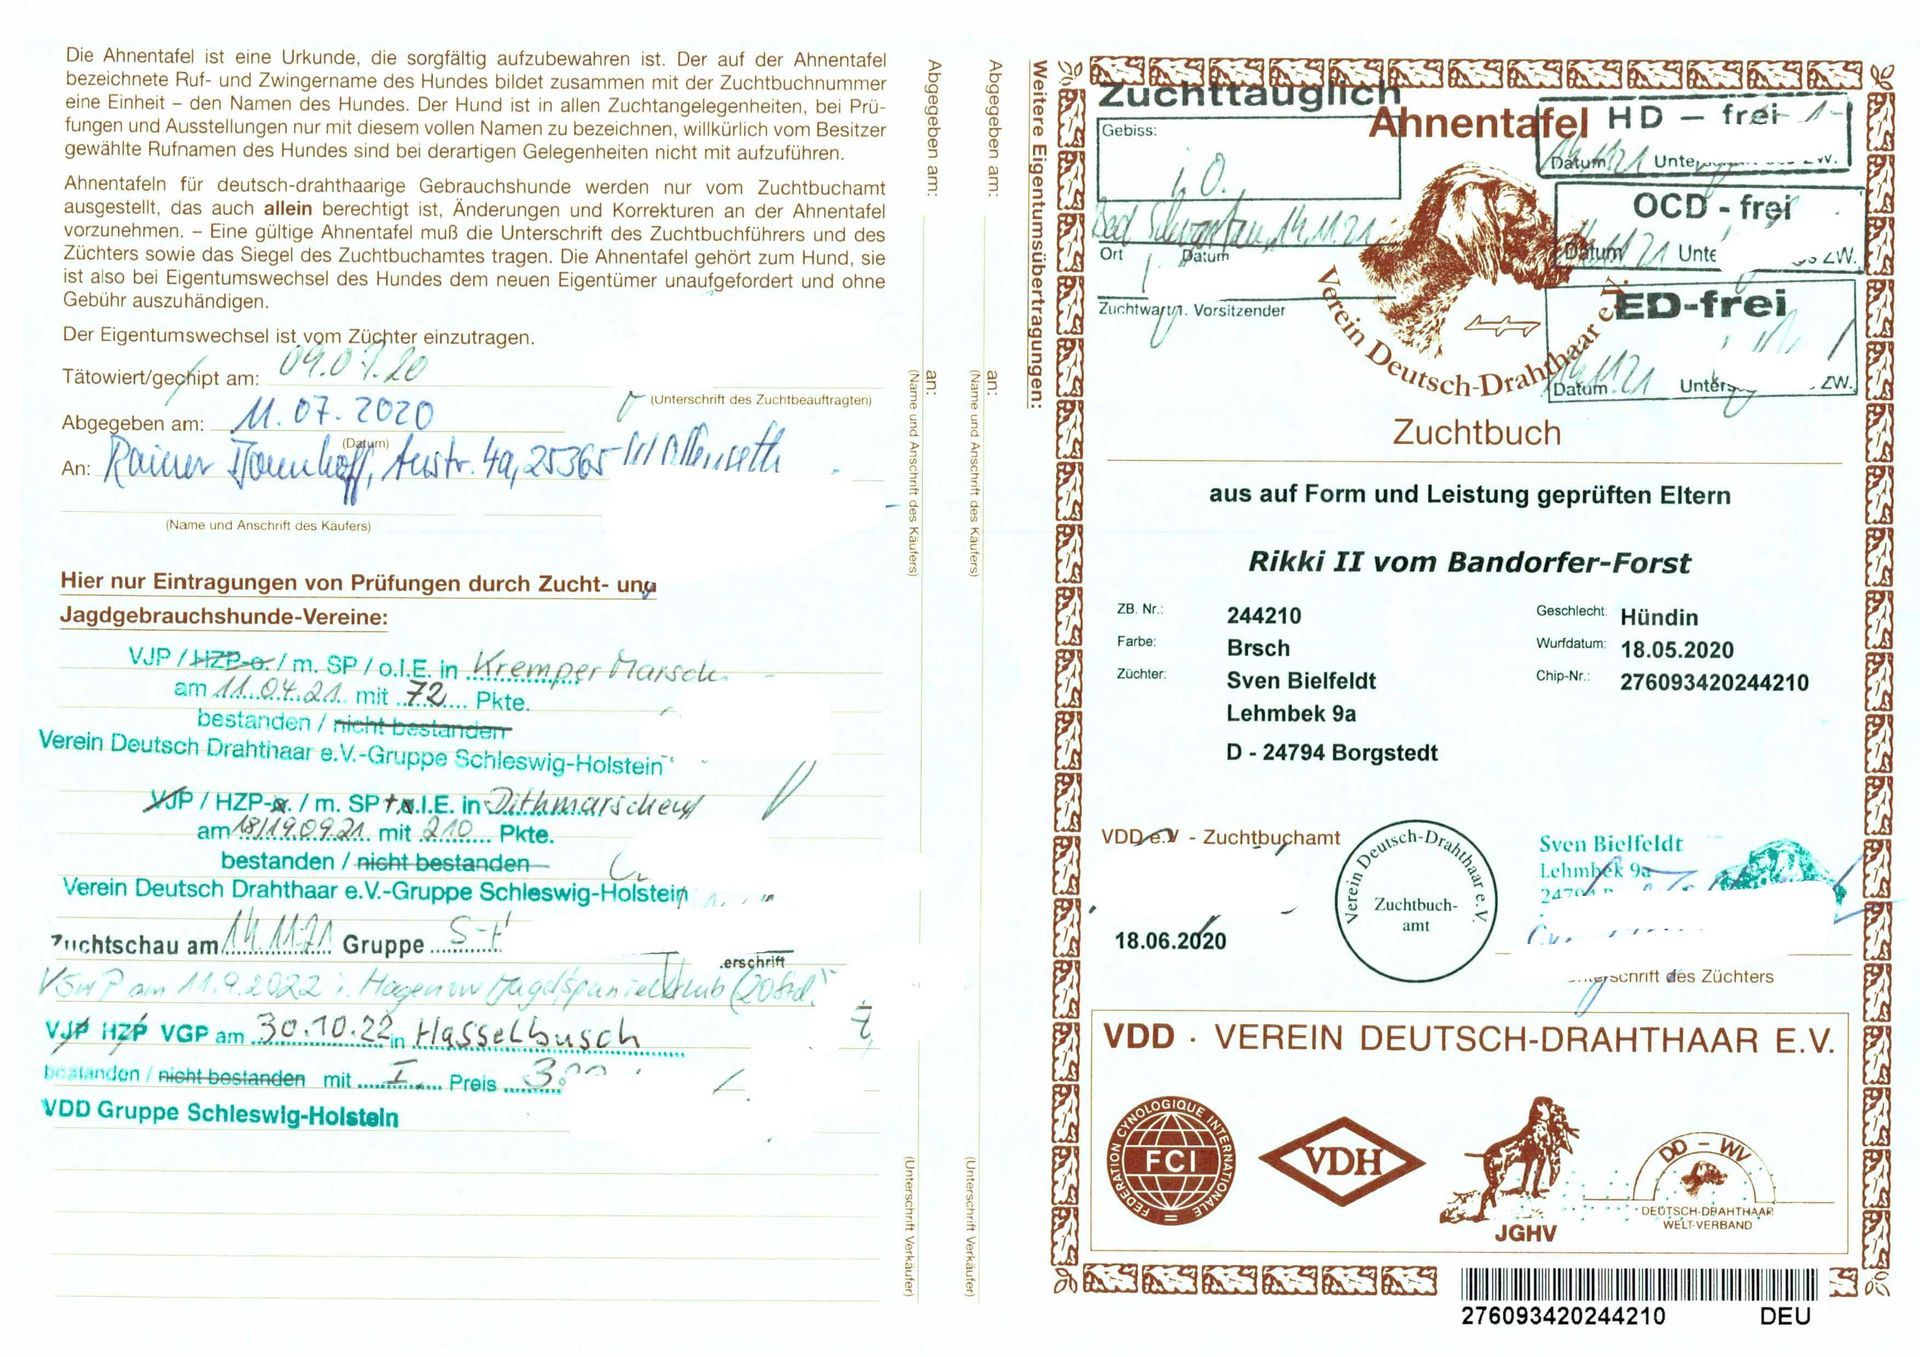 Die Ahnentafel ist eine Urkunde, die sorgfältig aufzubewahren ist. Der auf der Ahnentafel
bezeichnete Ruf- und Zwingername des Hundes bildet zusammen mit der Zuchtbuchnummer
eine Einheit – den Namen des Hundes. Der Hund ist in allen Zuchtangelegenheiten, bei Prü-
fungen und Ausstellungen nur mit diesem vollen Namen zu bezeichnen, willkürlich vom Besitzer
gewählte Rufnamen des Hundes sind bei derartigen Gelegenheiten nicht mit aufzuführen.
Ahnentafeln für deutsch-drahthaarige Gebrauchshunde werden nur vom Zuchtbuchamt
ausgestellt, das auch allein berechtigt ist, Änderungen und Korrekturen an der Ahnentafel
vorzunehmen. – Eine gültige Ahnentafel muß die Unterschrift des Zuchtbuchführers und des
Züchters sowie das Siegel des Zuchtbuchamtes tragen. Die Ahnentafel gehört zum Hund, sie
ist also bei Eigentumswechsel des Hundes dem neuen Eigentümer unaufgefordert und ohne
Gebühr auszuhändigen.
Der Eigentumswechsel ist vom Züchter einzutragen.
Tätowiert/gechipt am: 09.07.20
(Unterschrift des Zuchtbeauftragten)
Abgegeben am: 11.07.2020
(Datum)
An: Rainer 4a, 25365
(Name und Anschrift des Käufers)
Hier nur Eintragungen von Prüfungen durch Zucht- und
Jagdgebrauchshunde-Vereine:
VJP / HZP-o. / m. SP / o.I.E. in Kremper Marsch
am 11.04.21. mit 72 Pkte.
bestanden / nicht bestanden
Verein Deutsch Drahthaar e.V.-Gruppe Schleswig-Holstein
VJP / HZP-o. / m. SP + o.I.E. in Dithmarschen
am 18/19.09.21. mit 210 Pkte.
bestanden / nicht bestanden
Verein Deutsch Drahthaar e.V.-Gruppe Schleswig-Holstein
Zuchtschau am 14.11.21 Gruppe S-H
erschrift
VSwP am 11.9.2022 i. Hagenow Jagdspanielklub (20 Std.
VJP HZP VGP am 30.10.22 in Hasselbusch
bestanden / nicht bestanden mit I. Preis
VDD Gruppe Schleswig-Holstein
Abgegeben am:
an:
(Name und Anschrift des Käufers)
(Unterschrift Verkäufer)
Abgegeben am:
an:
(Name und Anschrift des Käufers)
(Unterschrift Verkäufer)
Weitere Eigentumsübertragungen:
Zuchttauglich
Gebiss:
i.O.
Bad Schwartau, 14.11.21
Ort Datum
Zuchtwart/1. Vorsitzender
Ahnentafel
HD – frei
Datum
OCD - frei
Datum
ZW.
ED-frei
Datum
ZW.
Verein Deutsch-Drahthaar e.V.
Zuchtbuch
aus auf Form und Leistung geprüften Eltern
Rikki II vom Bandorfer-Forst
ZB. Nr.: 244210 Geschlecht: Hündin
Farbe: Brsch Wurfdatum: 18.05.2020
Züchter: Sven Bielfeldt Chip-Nr.: 276093420244210
Lehmbek 9a
D - 24794 Borgstedt
VDD e.V - Zuchtbuchamt
18.06.2020
Verein Deutsch-Drahthaar e.V.
Zuchtbuch-
amt
Sven Bielfeldt
Lehmbek 9a
des Züchters
VDD · VEREIN DEUTSCH-DRAHTHAAR E.V.
FEDERATION CYNOLOGIQUE INTERNATIONALE
FCI
VDH
JGHV
DD – WV
DEUTSCH-DRAHTHAAR
WELT-VERBAND
276093420244210 DEU